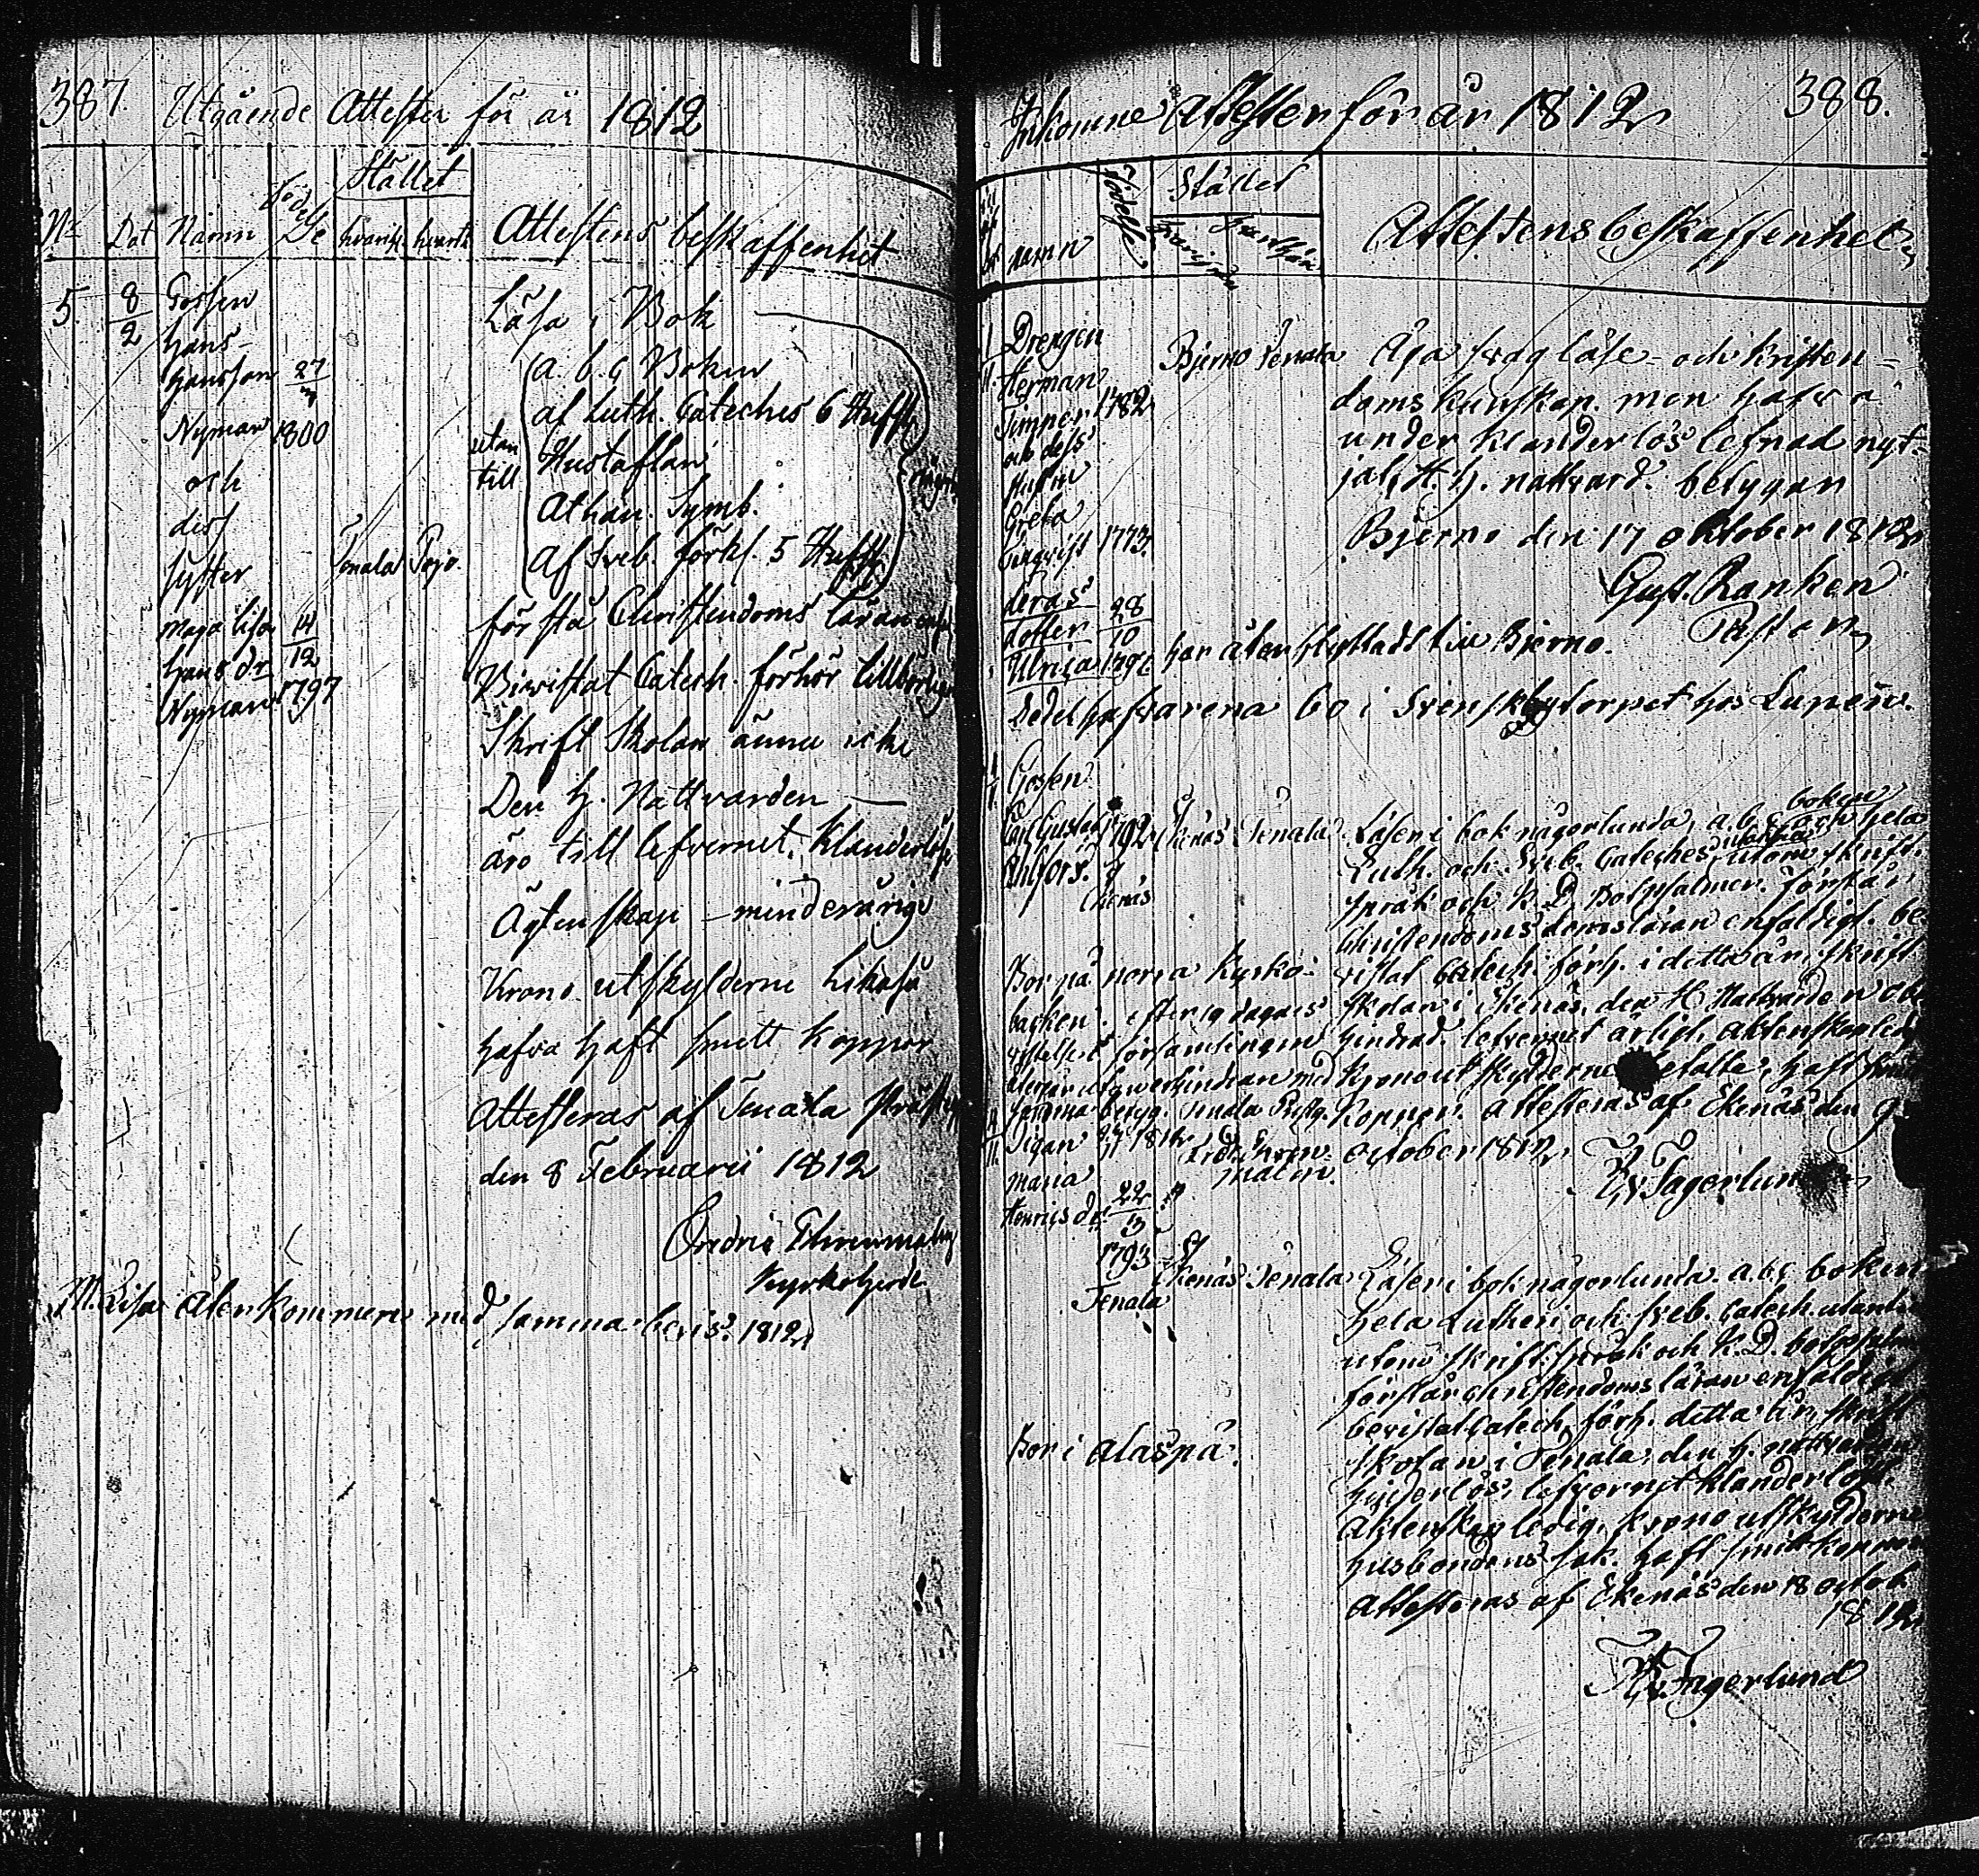 387 Utgående Attester för år 1812
Stället
No Dat Namn Födelse hvarifr. hvart Attestens beskaffenhet
5. 8/2 Gossen
Hans
Hansson 27
Nyman 1800
och
dess
syster
Maja Lisa 14/12
Hans dr
Nyman 1797
Tenala Pojo
Läsa i Bok
a. b. c Boken
af Luth. Cateches 6 Hufst.
utan till
Hustaflan
Athan. Symb.
af Sveb. förkl. 5 Hufst.
förstå Christendoms läran
Bivistat Catech. förhör tillbörligen
Skrift Skolan ännu icke
Den H. Nattvarden —
äro till lefvernet klanderlöse
Ägtenskap — minderårige
Krono utskylderne likaså
hafva haft smitt koppor
Attesteras af Tenala
den 8 Februarii 1812
Ehrenmalm
Kyrkoherde
M. Lisa återkommen med samma bevis 1812
Inkomne Attester för år 1812 388.
Stället
namn Födelse Attestens beskaffenhet
Drengen
Herman
Timper 1782
och dess
Hustru
Greta
1773.
deras
dotter 28/10
Ulrica
Bjerno Tenala
Äga svag läse- och kristen-
doms kunskap. men hafva
under klanderlös lefnad nyt-
jat H. H. nattvard. betygar
Bjerno den 17 October 1812
Gust. Ranken
Pastor
har åter flyttadt till Bjerno.
bo i Svenskbytorpet hos
Gossen
Carl Gustaf 1792
Ahlfors.
Ekenäs
Ekenäs Tenala
Läser i bok någorlunda, a. b. c boken och hela
Luth. och Sveb. Cateches utom skrift.
språk och K. D. Botpsalmer. förstår
Christendoms läran enfaldigt. be-
vistat Catech. förh. i detta år, skrift
skolan i Ekenäs, den H. Nattvarden
hindrad. lefvernet ärligt, aktenskap ledig
Kronoutskylderne betalte, haft
koppor. Attesteras af Ekenäs den 9
October 1812
Fagerlund
Bor på norra Kyrko-
backen. efter 19 dagars
församlingen
Pigan
Maria
Henrics dr 22/3
1793
Tenala
Ekenäs Tenala
Läser i bok någorlunda. a. b. c boken
hela Luthers och Sveb. Catech. utant
utom skrift. språk och K. D. botpsalm
förstår christendoms läran enfaldigt
bevistat Catech. förh. detta år, skrift
skolan i Tenala, den H. nattvarden
hinderlös, lefvernet klanderlöst.
Aktenskap ledig, Krono utskylderne
husbondens sak. haft smittkoppor
Attesteras af Ekenäs den 18 octob
1812
Fagerlund
Bor i Alaspå.